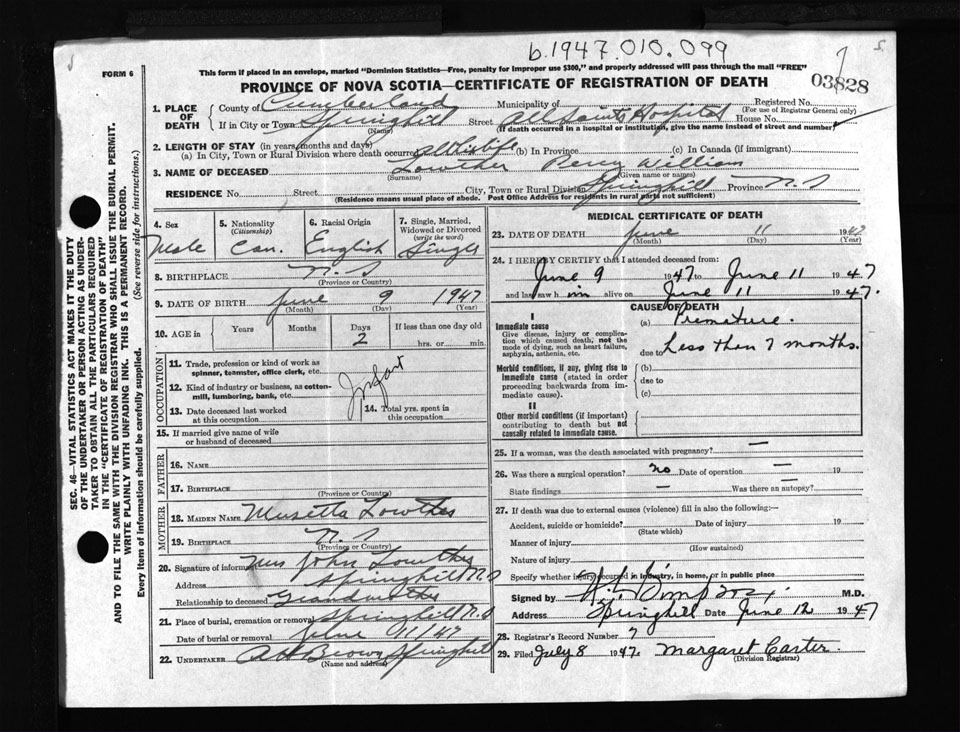 b.1947.010.099
FORM 6
This form if placed in an envelope, marked "Dominion Statistics—Free, penalty for improper use $300," and properly addressed will pass through the mail "FREE"
PROVINCE OF NOVA SCOTIA—CERTIFICATE OF REGISTRATION OF DEATH
03828
1. PLACE OF DEATH
County of Cumberland Municipality of Registered No.
(For use of Registrar General only)
If in City or Town Springhill Street All Saints Hospital House No.
(Name) (If death occurred in a hospital or institution, give the name instead of street and number)
2. LENGTH OF STAY (in years, months and days)
(a) In City, Town or Rural Division where death occurred All his life (b) In Province (c) In Canada (if immigrant)
3. NAME OF DECEASED Lowther Percy William
(Surname) (Given name or names)
RESIDENCE No. Street City, Town or Rural Division Springhill Province N.S
(Residence means usual place of abode. Post Office Address for residents in rural parts not sufficient)
4. Sex Male
5. Nationality (Citizenship) Can.
6. Racial Origin English
7. Single, Married, Widowed or Divorced (write the word) Single
8. BIRTHPLACE N.S
(Province or Country)
9. DATE OF BIRTH June 9 1947
(Month) (Day) (Year)
10. AGE in Years Months Days 2 If less than one day old hrs. or min.
OCCUPATION
11. Trade, profession or kind of work as spinner, teamster, office clerk, etc.
12. Kind of industry or business, as cotton-mill, lumbering, bank, etc.
Infant
13. Date deceased last worked at this occupation
14. Total yrs. spent in this occupation
15. If married give name of wife or husband of deceased
FATHER
16. NAME
17. BIRTHPLACE
(Province or Country)
MOTHER
18. MAIDEN NAME Musetta Lowther
19. BIRTHPLACE N.S
(Province or Country)
20. Signature of informant Mrs John Lowther
Address Springhill N.S
Relationship to deceased Grandmother
21. Place of burial, cremation or removal Springhill N.S
Date of burial or removal June 11/47
22. UNDERTAKER A H Brown Springhill
(Name and address)
MEDICAL CERTIFICATE OF DEATH
23. DATE OF DEATH June 11 1947
(Month) (Day) (Year)
24. I HEREBY CERTIFY that I attended deceased from:
June 9 1947 to June 11 1947
and last saw him alive on June 11 1947.
CAUSE OF DEATH
I
Immediate cause
Give disease, injury or complication which caused death, not the mode of dying, such as heart failure, asphyxia, asthenia, etc.
(a) Premature.
due to Less than 7 months.
Morbid conditions, if any, giving rise to immediate cause (stated in order proceeding backwards from immediate cause).
(b)
due to
(c)
II
Other morbid conditions (if important) contributing to death but not causally related to immediate cause.
25. If a woman, was the death associated with pregnancy? —
26. Was there a surgical operation? no Date of operation — 19
State findings — Was there an autopsy? —
27. If death was due to external causes (violence) fill in also the following:—
Accident, suicide or homicide? Date of injury 19
(State which)
Manner of injury
(How sustained)
Nature of injury
Specify whether injury occurred in industry, in home, or in public place
Signed by M.D.
Address Springhill Date June 12 1947
28. Registrar's Record Number 7
29. Filed July 8 1947. Margaret Carter
(Division Registrar)
SEC. 46—VITAL STATISTICS ACT MAKES IT THE DUTY
OF THE UNDERTAKER OR PERSON ACTING AS UNDER-
TAKER TO OBTAIN ALL THE PARTICULARS REQUIRED
IN THE "CERTIFICATE OF REGISTRATION OF DEATH"
AND TO FILE THE SAME WITH THE DIVISION REGISTRAR WHO SHALL ISSUE THE BURIAL PERMIT.
WRITE PLAINLY WITH UNFADING INK. THIS IS A PERMANENT RECORD.
Every item of information should be carefully supplied. (See reverse side for instructions.)